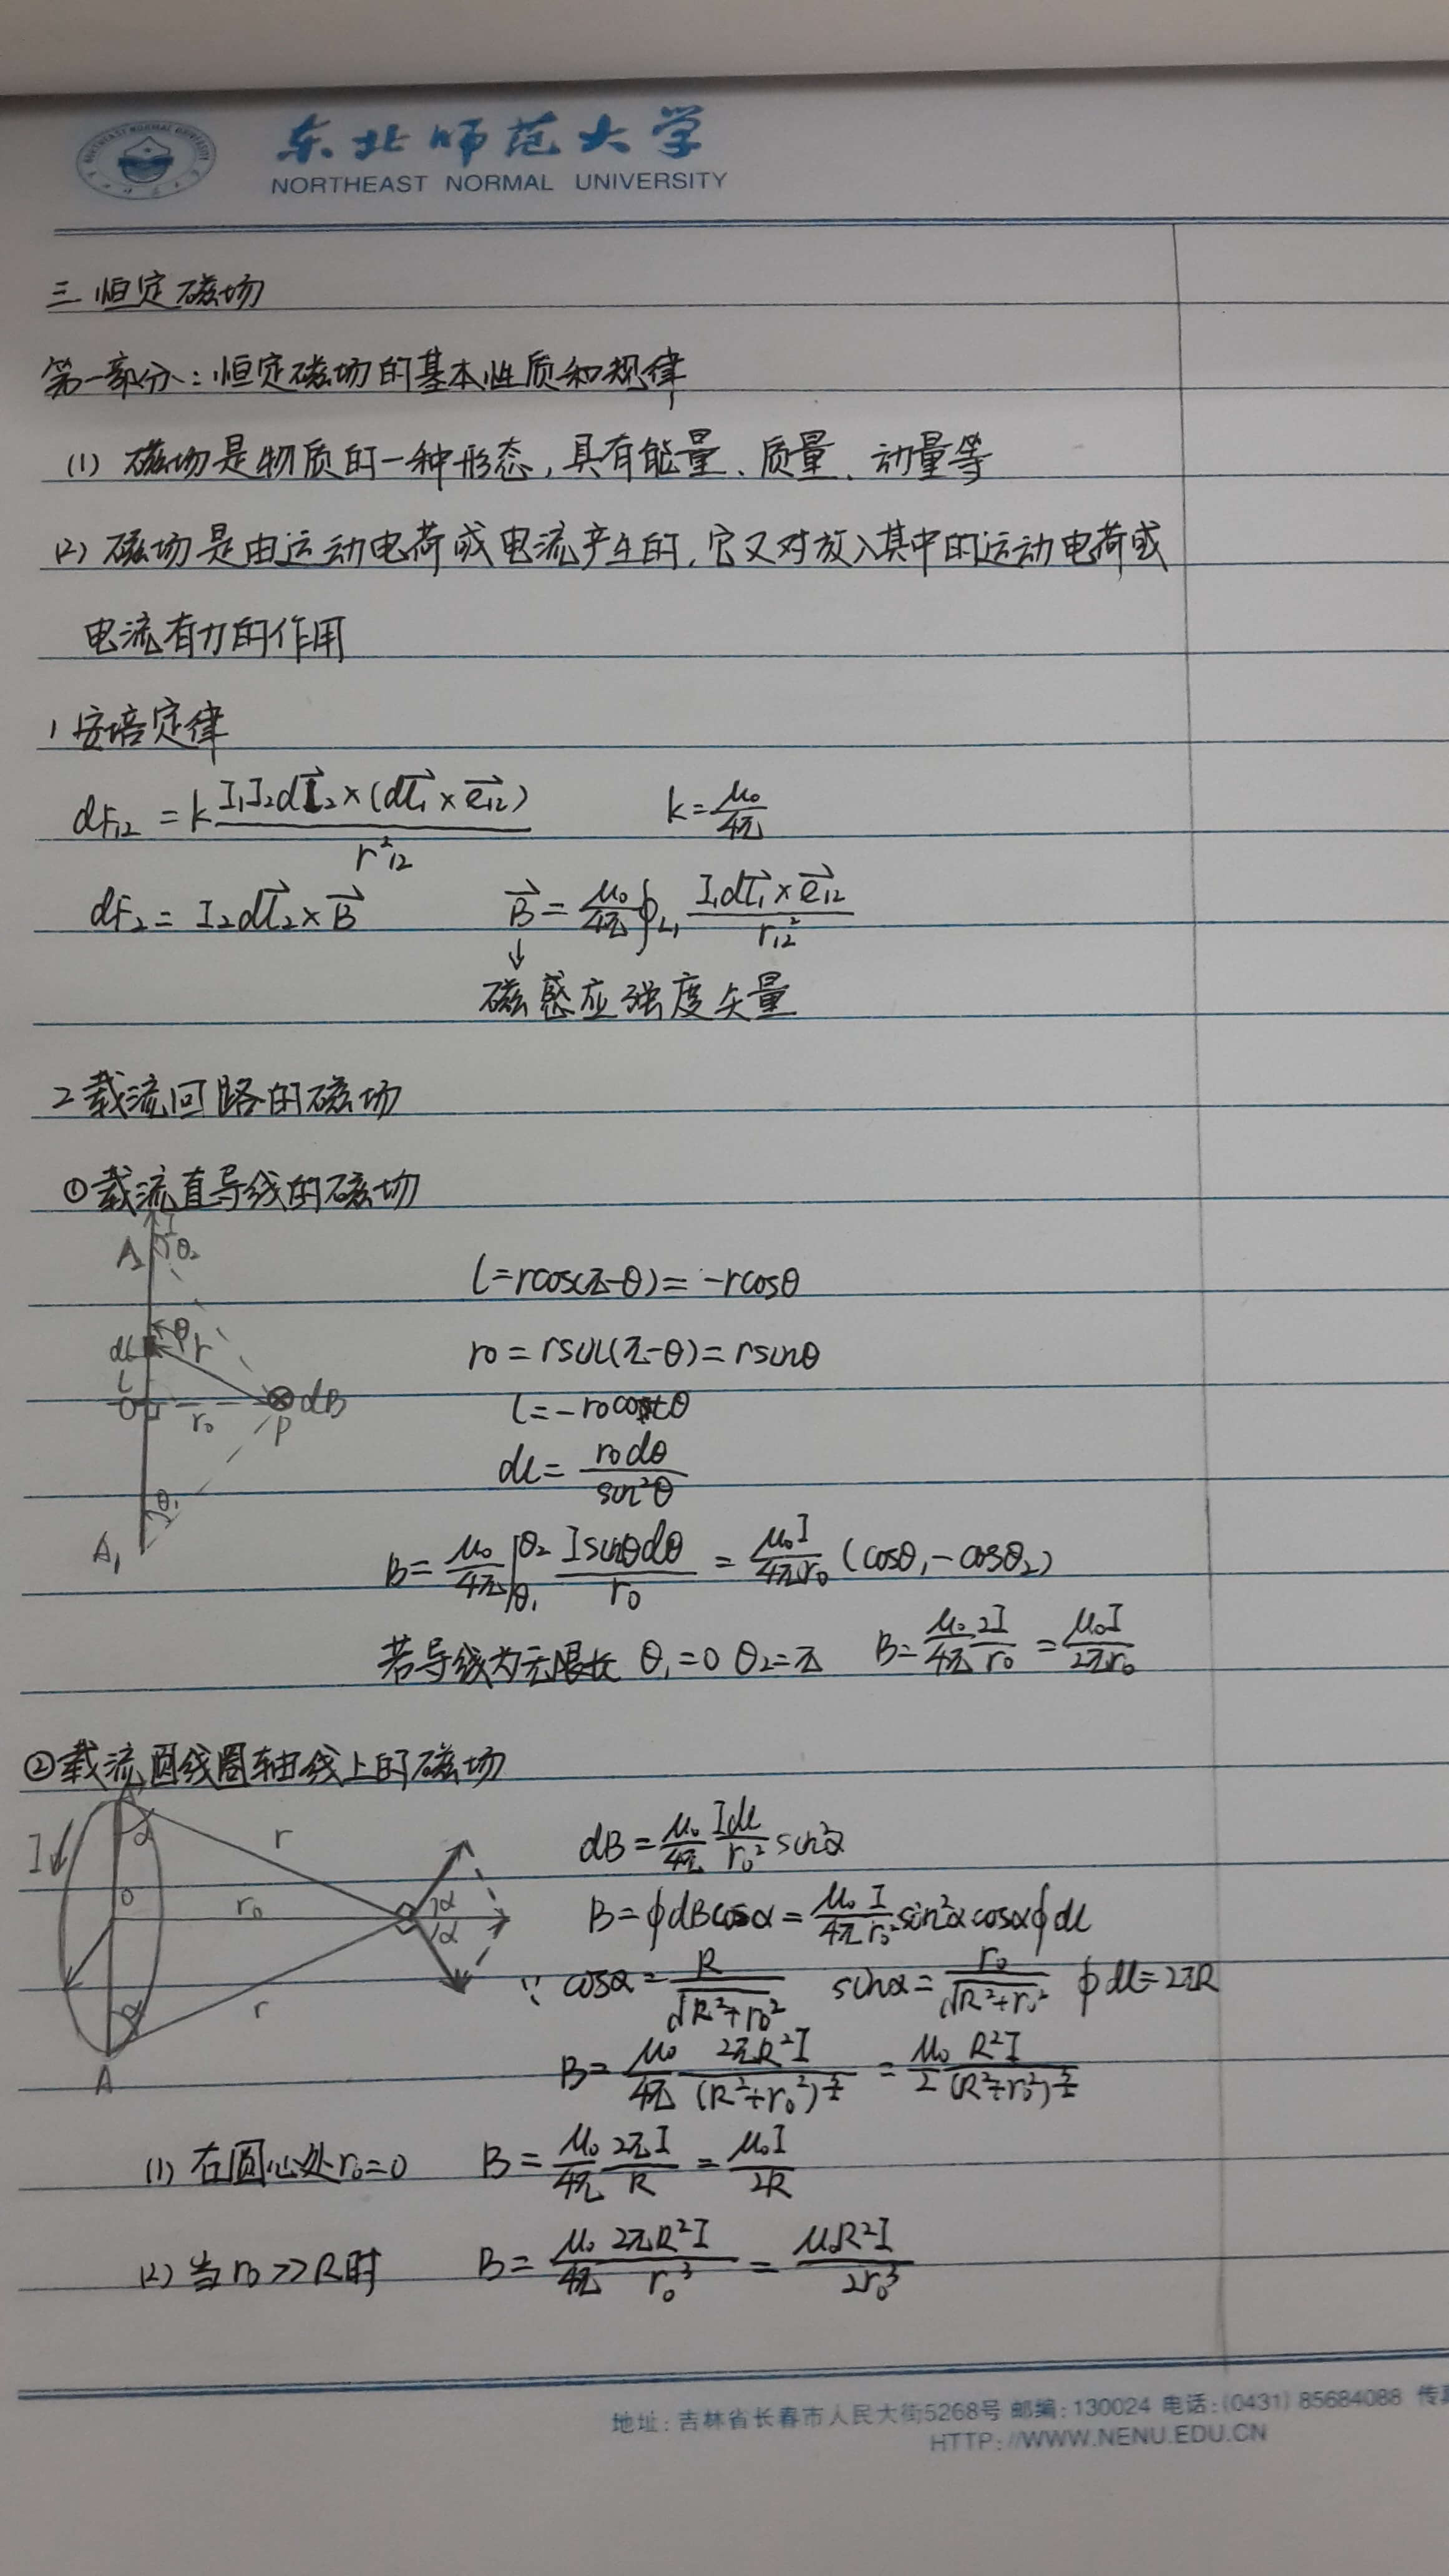 东北师范大学
NORTHEAST NORMAL UNIVERSITY
三 恒定磁场
第一部分：恒定磁场的基本性质和规律
(1) 磁场是物质的一种形态，具有能量、质量、动量等
(2) 磁场是由运动电荷或电流产生的，它又对放入其中的运动电荷或
电流有力的作用
1 安培定律
dF₁₂ = k I₁I₂dl⃗₂×(dl⃗₁×e⃗₁₂) / r²₁₂    k = μ₀/4π
dF₂ = I₂dl⃗₂×B⃗    B⃗ = μ₀/4π ∮L₁ I₁dl⃗₁×e⃗₁₂ / r₁₂²
↓
磁感应强度矢量
2 载流回路的磁场
①载流直导线的磁场
I
A₂ θ₂
l = rcos(π-θ) = -rcosθ
θ
dl r
r₀ = rsin(π-θ) = rsinθ
l
O r₀ P dB
l = -r₀cotθ
dl = r₀dθ / sin²θ
θ₁
A₁
B = μ₀/4π ∫θ₁^θ₂ Isinθdθ / r₀ = μ₀I/4πr₀ (cosθ₁-cosθ₂)
若导线为无限长 θ₁=0 θ₂=π    B = μ₀/4π 2I/r₀ = μ₀I/2πr₀
②载流圆线圈轴线上的磁场
A
I α r
dB = μ₀/4π Idl/r₀² sin²α
O r₀ α
α
B = ∮dBcosα = μ₀/4π I/r₀² sin²αcosα∮dl
∵ cosα = R/√(R²+r₀²)    sinα = r₀/√(R²+r₀²)    ∮dl = 2πR
α r
A
B = μ₀/4π 2πR²I/(R²+r₀²)^(3/2) = μ₀/2 R²I/(R²+r₀²)^(3/2)
(1) 在圆心处r₀=0    B = μ₀/4π 2πI/R = μ₀I/2R
(2) 当r₀>>R时    B = μ₀/4π 2πR²I/r₀³ = μ₀R²I/2r₀³
地址：吉林省长春市人民大街5268号 邮编：130024 电话：(0431) 85684088 传真
HTTP://WWW.NENU.EDU.CN